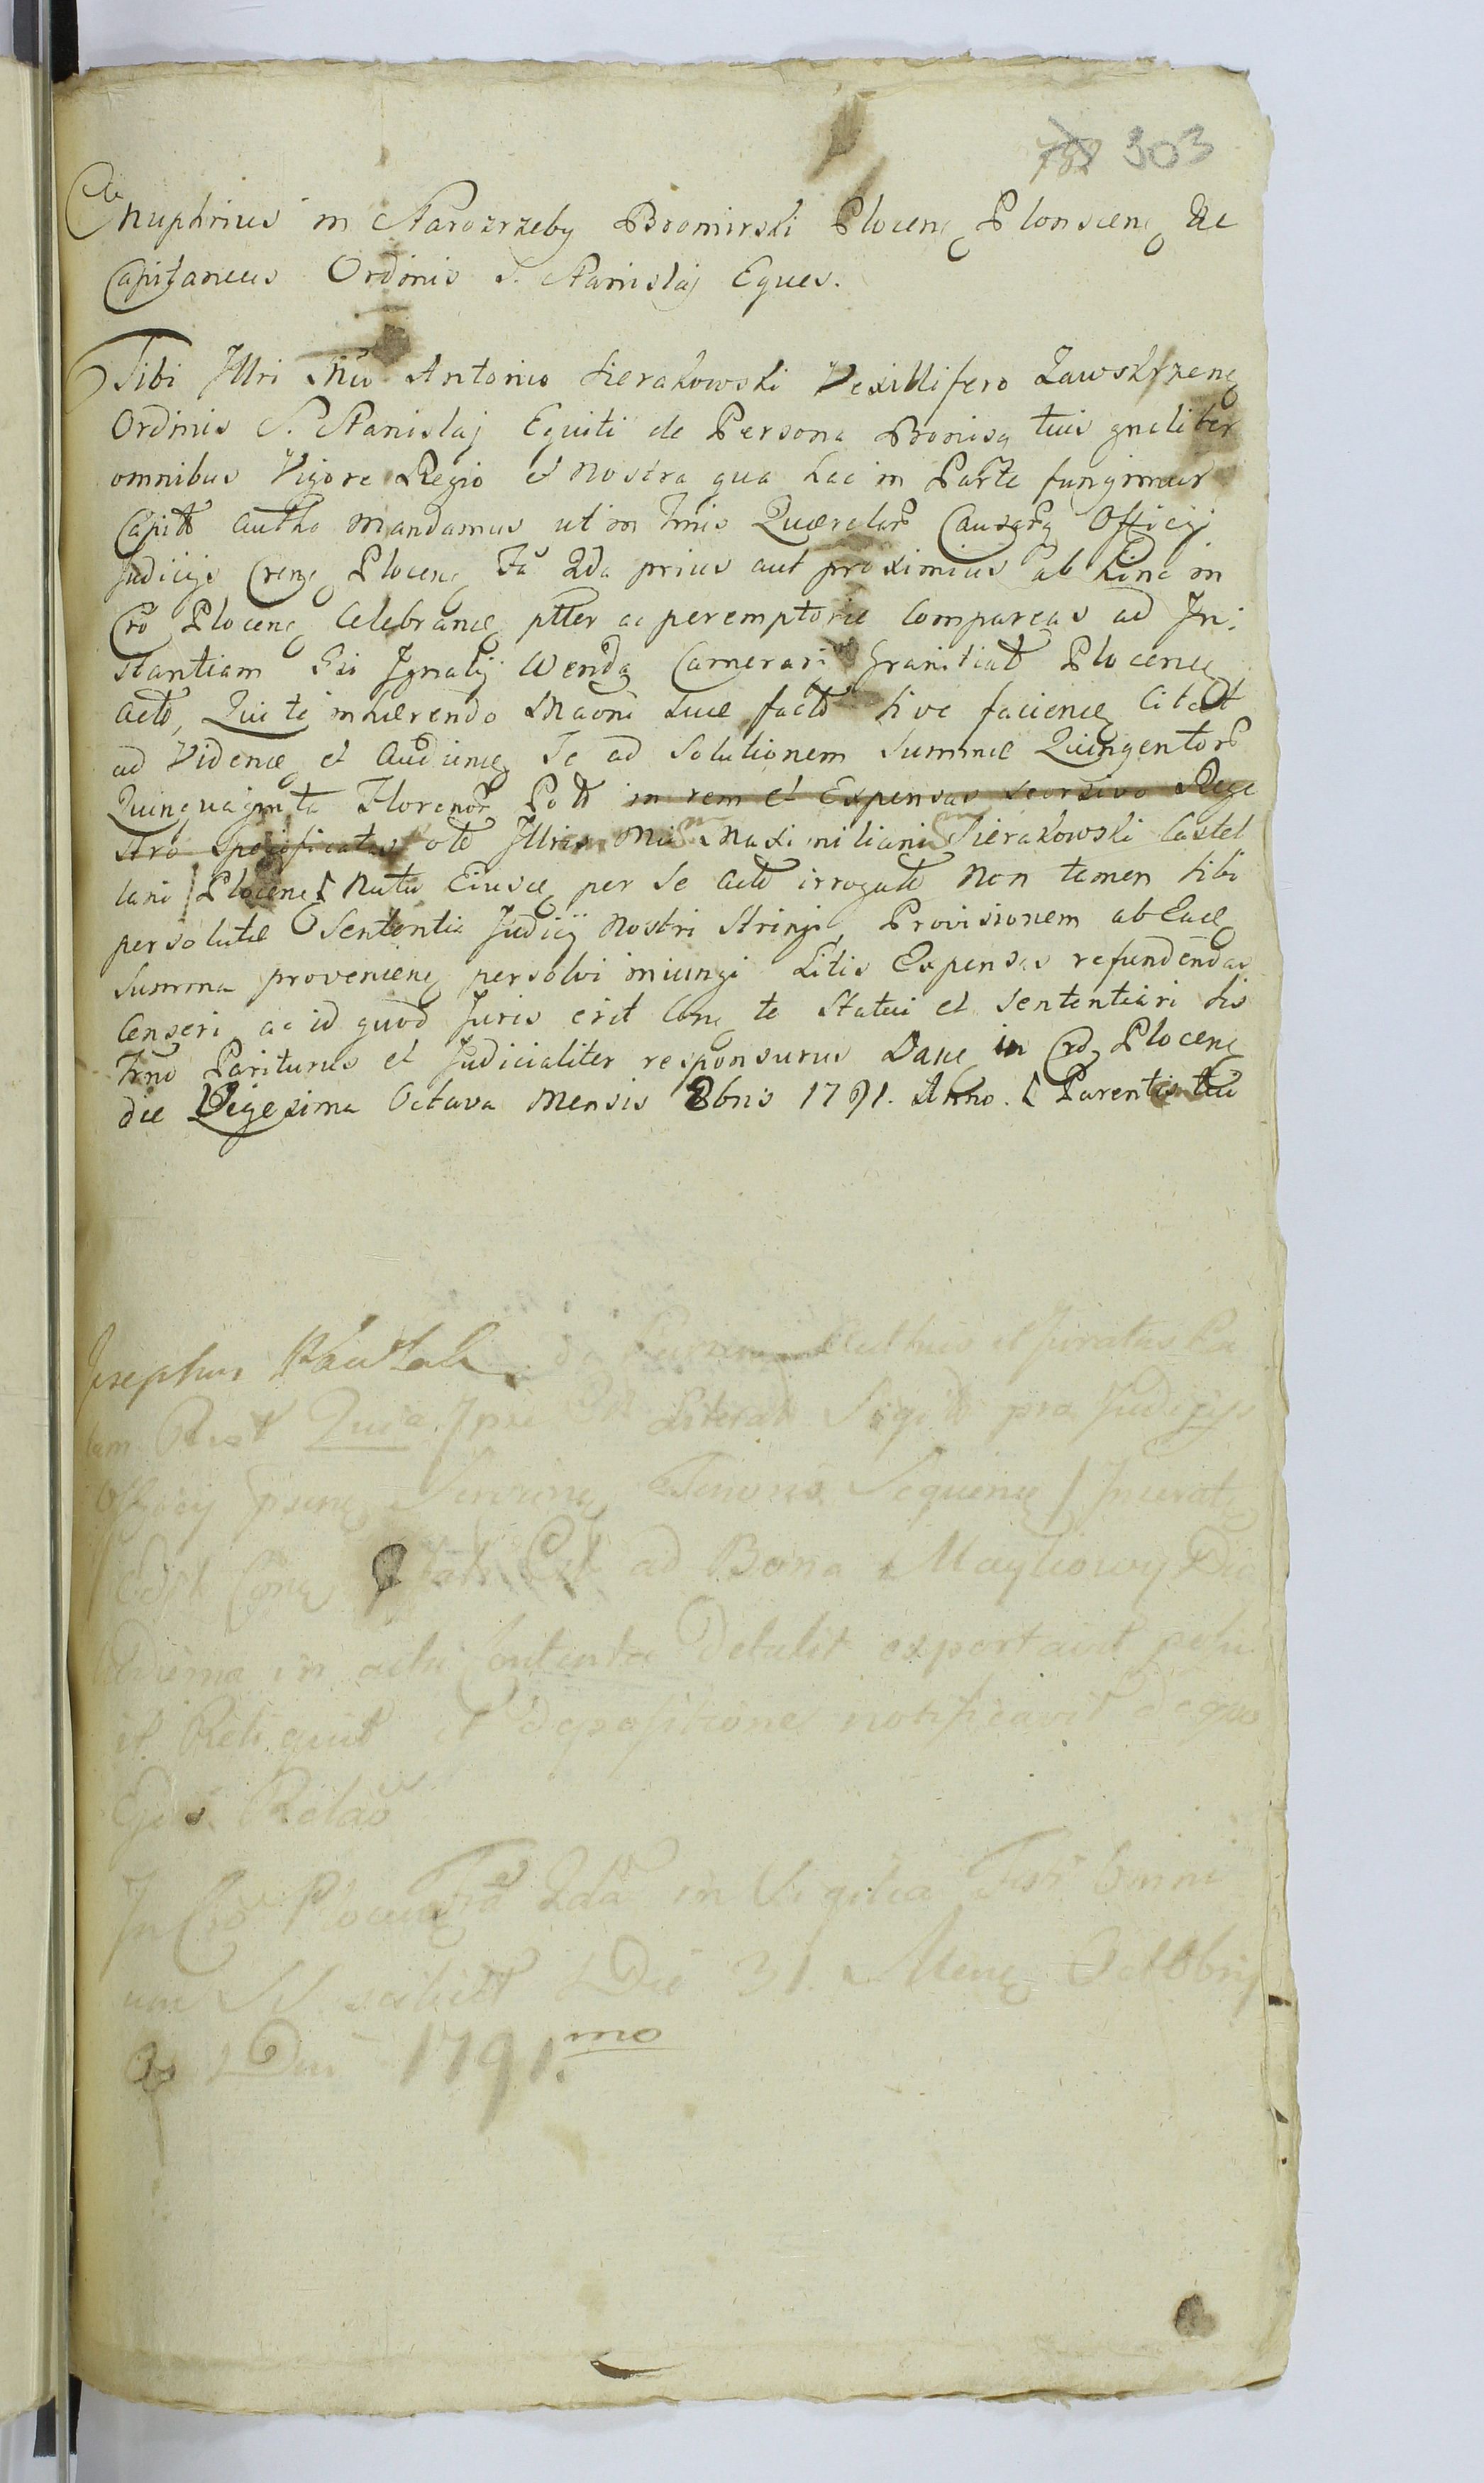 788 303
Onuphrius in Starozrzeby Bromirski Plocen̨ Plonscen̨ &c
Capitaneus Ordinis S. Stanislaj Eques.
Tibi Illri Mco Antonio Sierakowski Vexillifero Zawskrzen̨
Ordinis S. Stanislaj Equiti de Persona Bonisq tuis gnaliter
omnibus Vigore Regio et Nostra qua hac in Parte fungimur
Capitt autha Mandamus ut in Tmis Querelarb Causarq Officij
Judicijs Cren̨ Plocen̨ Fa 2da prius aut proximius ab hinc in
Cro Plocen̨ Celebran̨ ptter ac peremptorie Compareas ad In:
stantiam Gsi Ignatij Wenda Camerarij Granitialt Plocen̨
actt, Qui te inhaerendo Maoni Suae factt sive facien̨ Citatt
ad Viden̨ et Audien̨ Te ad Solutionem Summae Quingentorb
Quinquaginta Florenorb Pott in rem et Expensas seorsivo Rege
stro specificatas ott Illris Mci Maximiliani Sierakowski Castel
lani Plocen̨ [ Nutu Eiusd̨ per Se actt irrogatt Non tamen Sibi
persolutae Sententia Judicij Nostri Stringi, Provisionem ab Ead̨
Summa provenien̨ persolvi iniungi Litis Expensas refundendas
Censeri ac id quod Juris erit Con̨ te Statui et Sententiari Sis
Tmo Pariturus et Judicialiter responsurus Dan̨ in Cro Plocen̨
die Vigesima Octava Mensis 8bris 1791. Anno. [ Parentis tui
Josephus de Authus et Juratus Pa
lam Rect Quia Ipse Literas Sigitt pro Judicijs
Officij psen̨ Tenoris Sequen̨ Inseratt
Con̨ ad Bona
in actu Contenta Detulit exportavit posu
it Reliquit et depositione notificavit de quo
Ejus Relao
In Cro Plocen̨ Fa 2da in Vigilia Festi Omni
um SS. scilicet Die 31. Men̨ Octobris
Ao Dni 1791.mo